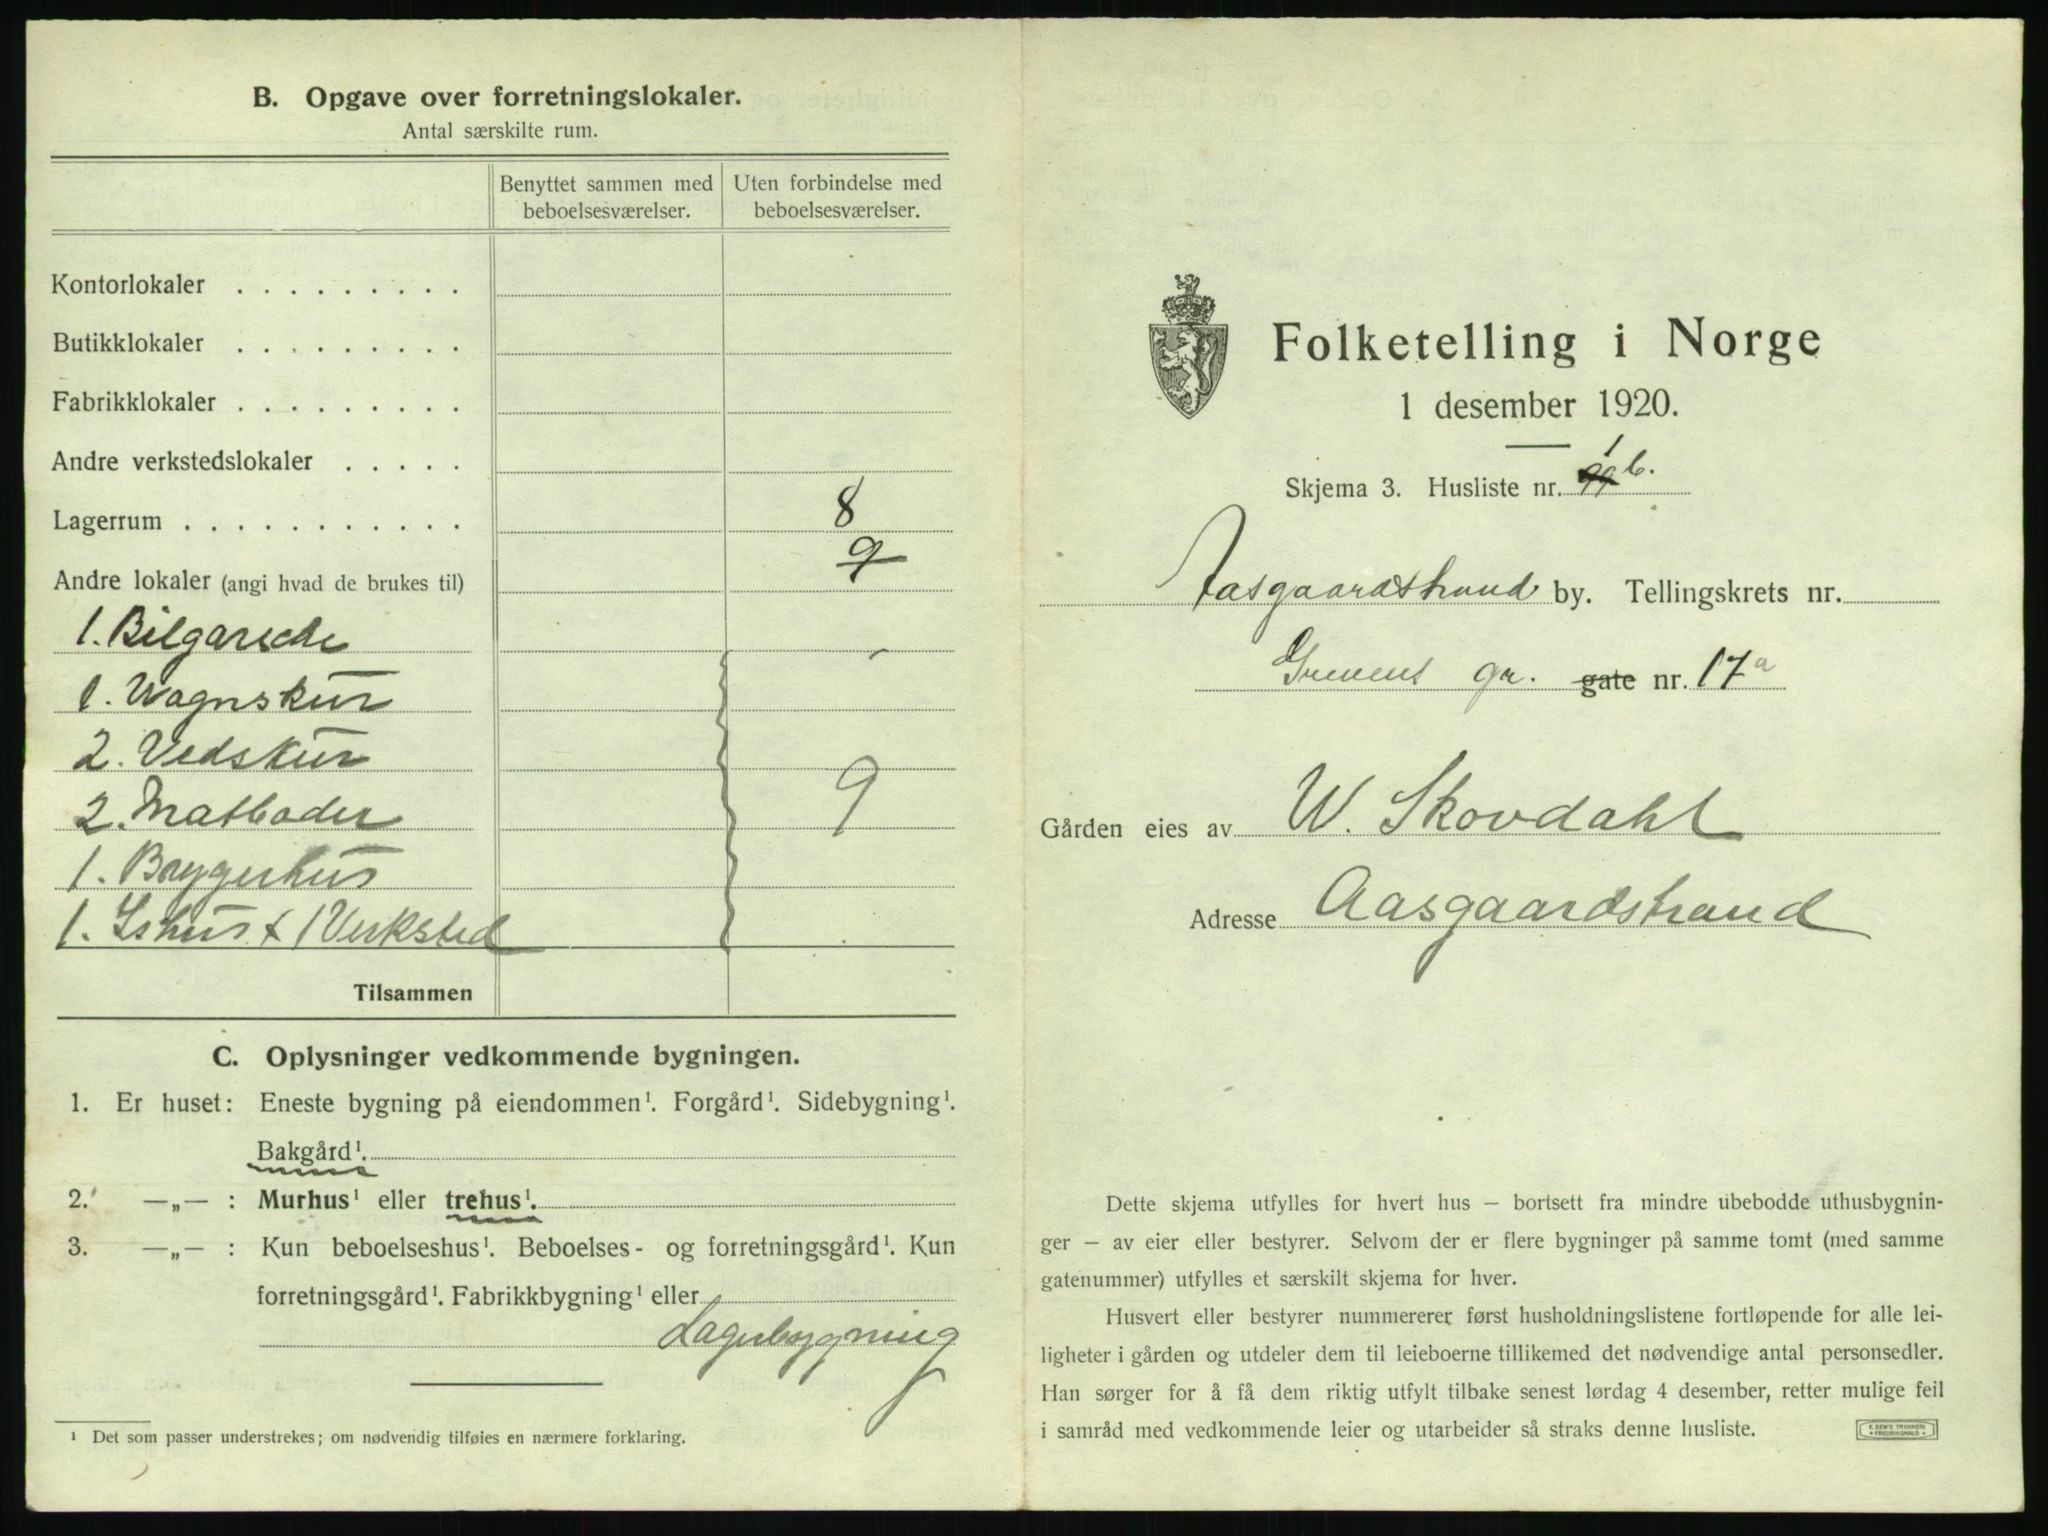 B. Opgave over forretningslokaler.
Antal særskilte rum.
Benyttet sammen med beboelsesværelser.
Uten forbindelse med beboelsesværelser.
Kontorlokaler . . . . . . . . .
Butikklokaler . . . . . . . . .
Fabrikklokaler . . . . . . . . .
Andre verkstedslokaler . . . . .
Lagerrum . . . . . . . . . . . . 8
9
Andre lokaler (angi hvad de brukes til)
1. Bilgarsche
1. Wognskur
2. Vedskur
2. Matboder 9
1. Bryggerhus
1. Ishus + 1 Verksted
Tilsammen
C. Oplysninger vedkommende bygningen.
1. Er huset: Eneste bygning på eiendommen¹. Forgård¹. Sidebygning¹.
Bakgård¹.
2. —„— : Murhus¹ eller trehus¹.
3. —„— : Kun beboelseshus¹. Beboelses- og forretningsgård¹. Kun
forretningsgård¹. Fabrikkbygning¹ eller
Lagerbygning
¹ Det som passer understrekes; om nødvendig tilføies en nærmere forklaring.
Folketelling i Norge
1 desember 1920.
Skjema 3. Husliste nr. 1 b.
Aasgaardstrand by. Tellingskrets nr.
Grevens gr. gate nr. 17a
Gården eies av W. Skovdahl
Adresse Aasgaardstrand
Dette skjema utfylles for hvert hus – bortsett fra mindre ubebodde uthusbygnin-
ger – av eier eller bestyrer. Selvom der er flere bygninger på samme tomt (med samme
gatenummer) utfylles et særskilt skjema for hver.
Husvert eller bestyrer nummererer først husholdningslistene fortløpende for alle lei-
ligheter i gården og utdeler dem til leieboerne tillikemed det nødvendige antal personsedler.
Han sørger for å få dem riktig utfylt tilbake senest lørdag 4 desember, retter mulige feil
i samråd med vedkommende leier og utarbeider så straks denne husliste.
E. SEM'S TRYKKERI
FREDRIKSHALD